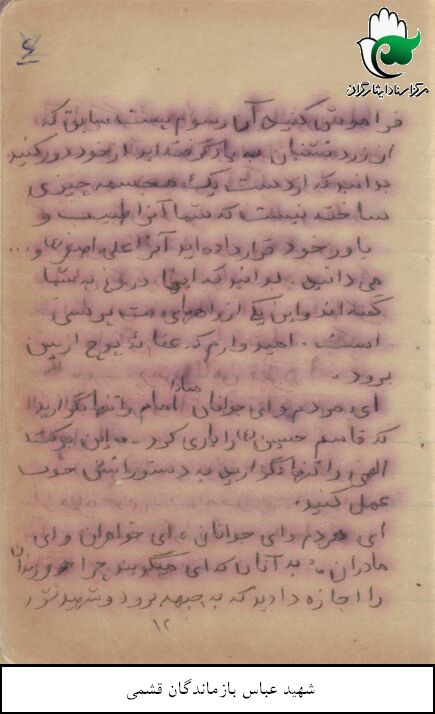 ۶
مرکز اسناد ایثارگران
فراموش کنید آن رسوم پست سابق که
از زردتشتیان به یاد گرفته اید از خود دور کنید
بدانید که از دست یک مجسمه چیزی
ساخته نیست که شما آنرا طبیب و
یاور خود قرار داده اید آنرا علی اصغر (ع) و ...
می دانید. بدانید که اینها دروغ به شما
گفته اند و این یکی از راههای بت پرستی
است. امیدوارم که عقائد پوچ از بین
برود.
ای مردم و ای جوانان مبادا امام را تنها بگذارید
که قاسم حسین (ع) را یاری کرد. به این
الهی را تنها نگذارید به دستوراتش خوب
عمل کنید.
ای مردم و ای جوانان، ای خواهران و ای
مادران به آنان که ای میگویند چرا فرزندان
را اجازه دادید که به جبهه برود و شهید شود
۱۲
شهید عباس بازماندگان قشمی